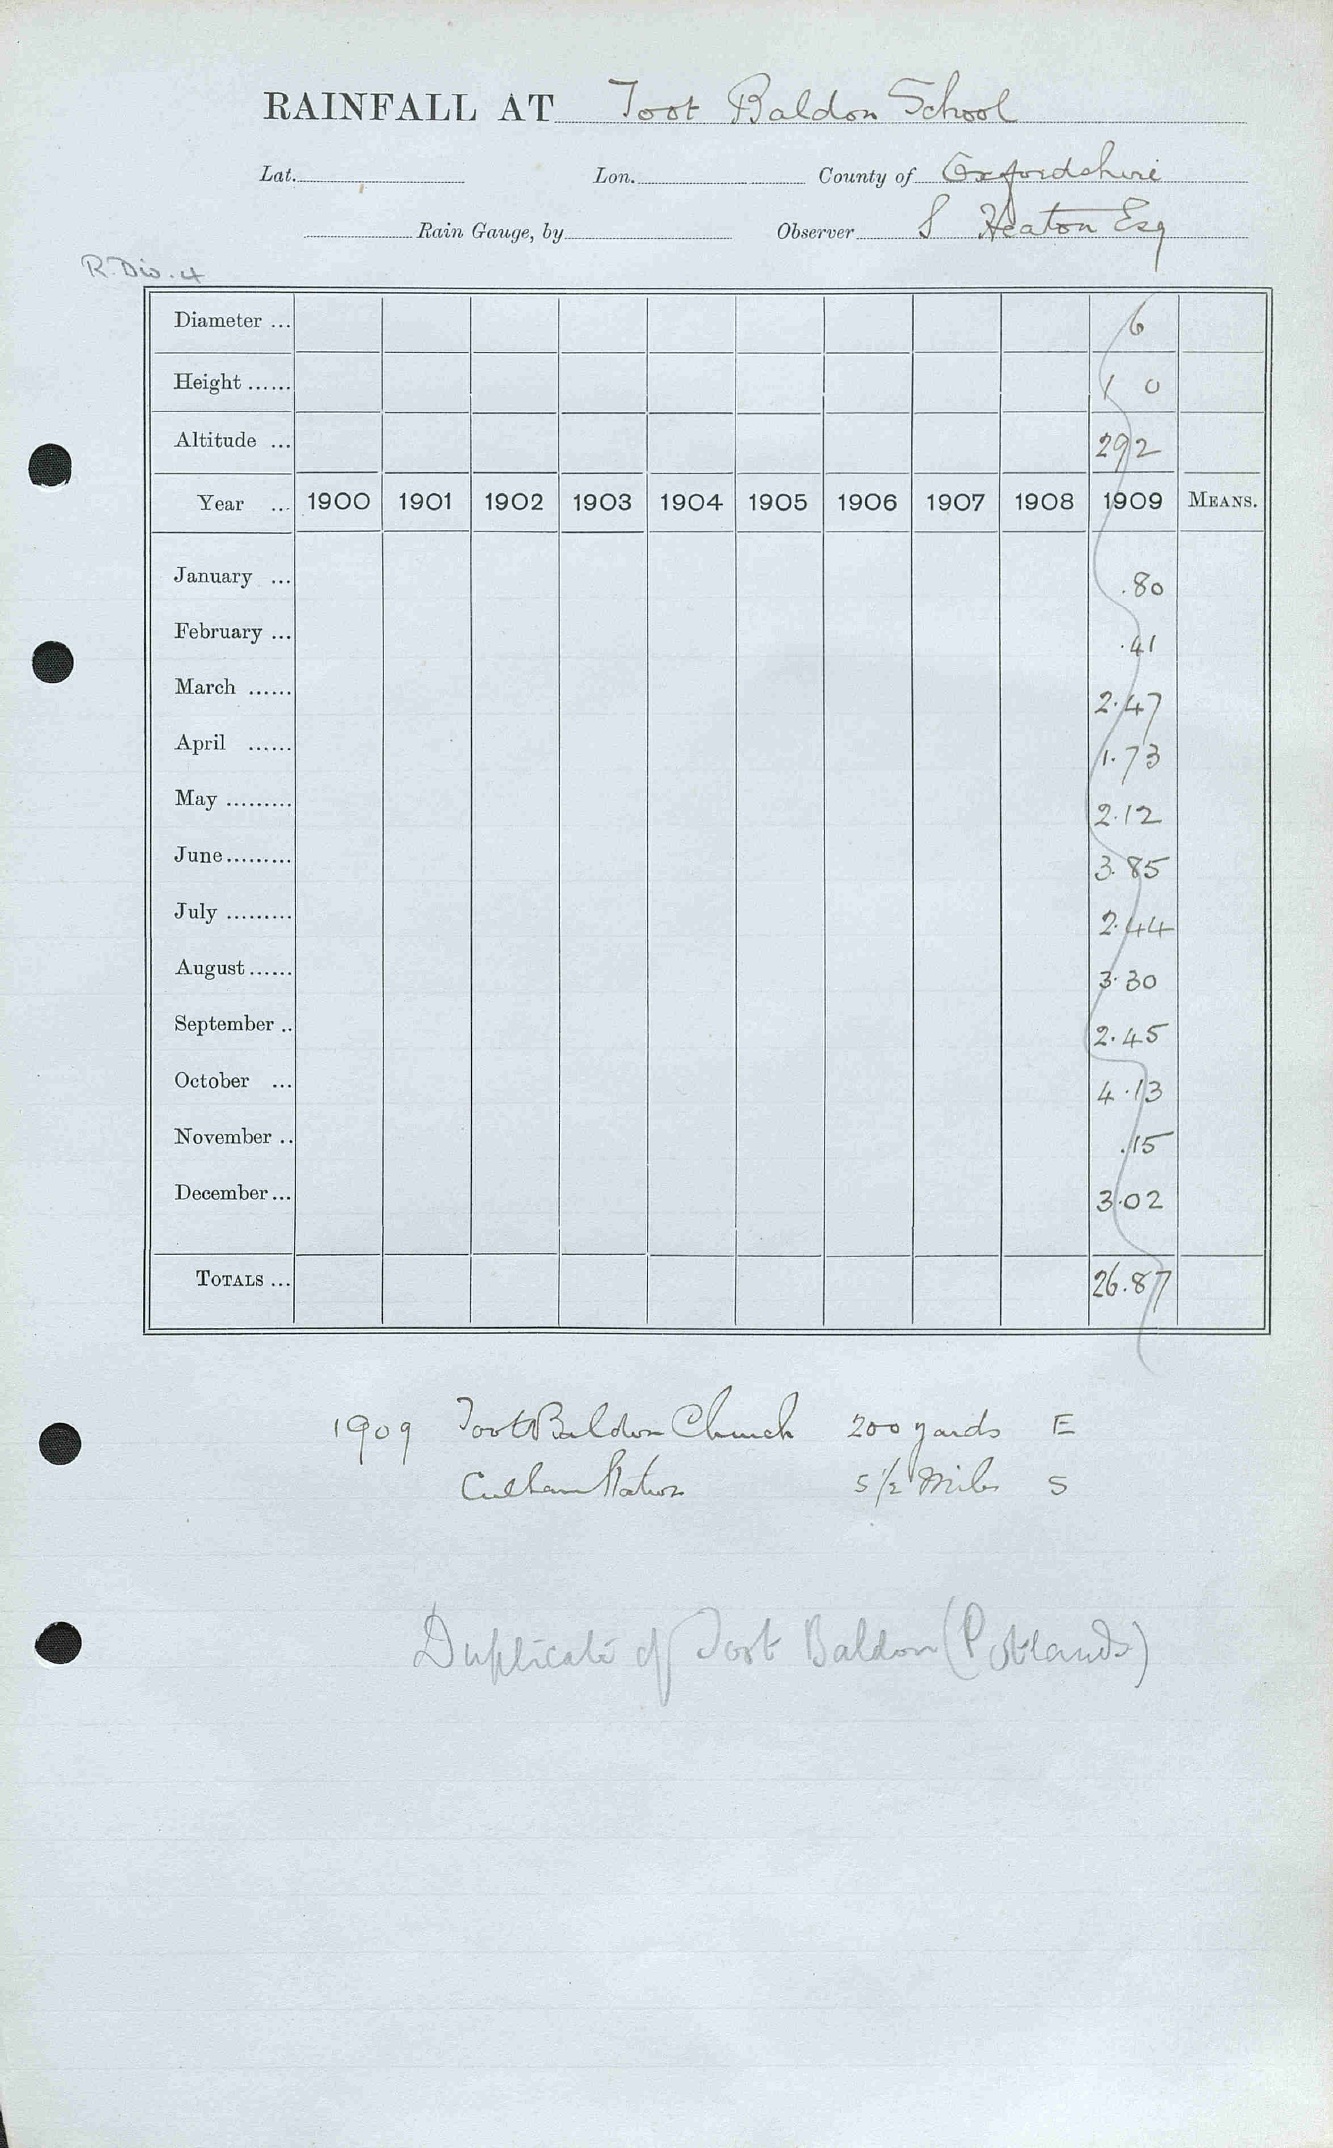 RAINFALL AT Toot Baldon School
Lat. Lon. County of Oxfordshire
Rain Gauge, by Observer S Heaton Esq
R. Div. 4
Diameter ... 6
Height ...... 1 0
Altitude ... 292
Year ... 1900 1901 1902 1903 1904 1905 1906 1907 1908 1909 MEANS.
January ... .80
February ... .41
March ...... 2.47
April ...... 1.73
May ......... 2.12
June ......... 3.85
July ......... 2.44
August ...... 3.30
September .. 2.45
October ... 4.13
November .. .15
December ... 3.02
TOTALS ... 26.87
1909 Toot Baldon Church 200 yards E
Culham Station 5 1/2 Miles S
Duplicate of Toot Baldon (Potlands)